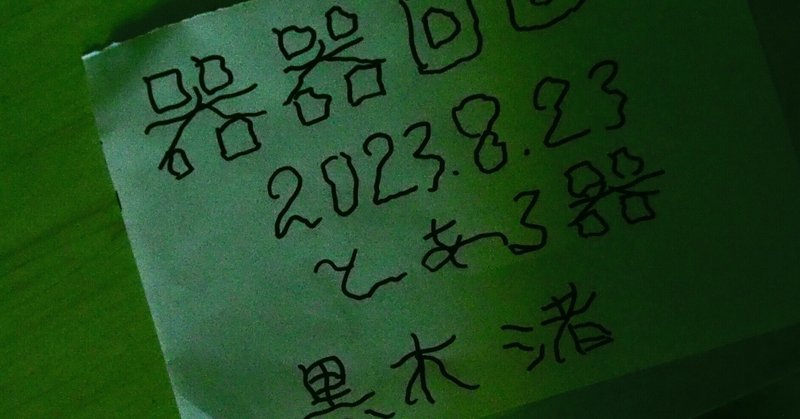 器器回回
2023.8.23
とある器
黒木渚